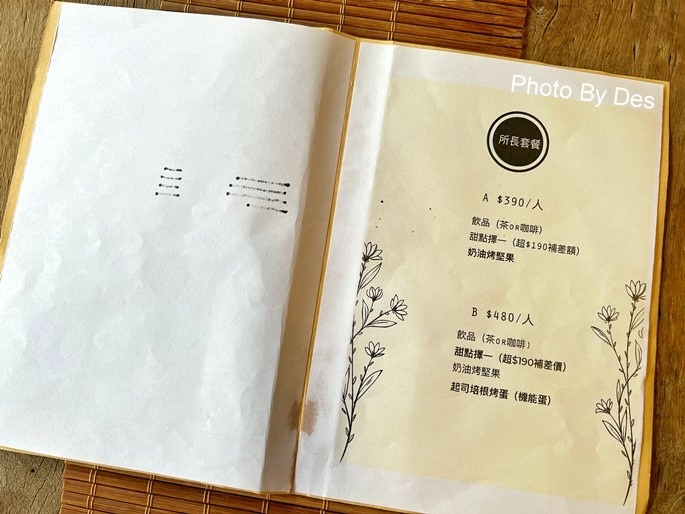 Photo By Des
所長套餐
A $390/人
飲品（茶OR咖啡）
甜點擇一（超$190補差額）
奶油烤堅果
B $480/人
飲品（茶OR咖啡）
甜點擇一（超$190補差價）
奶油烤堅果
起司培根烤蛋（機能蛋）